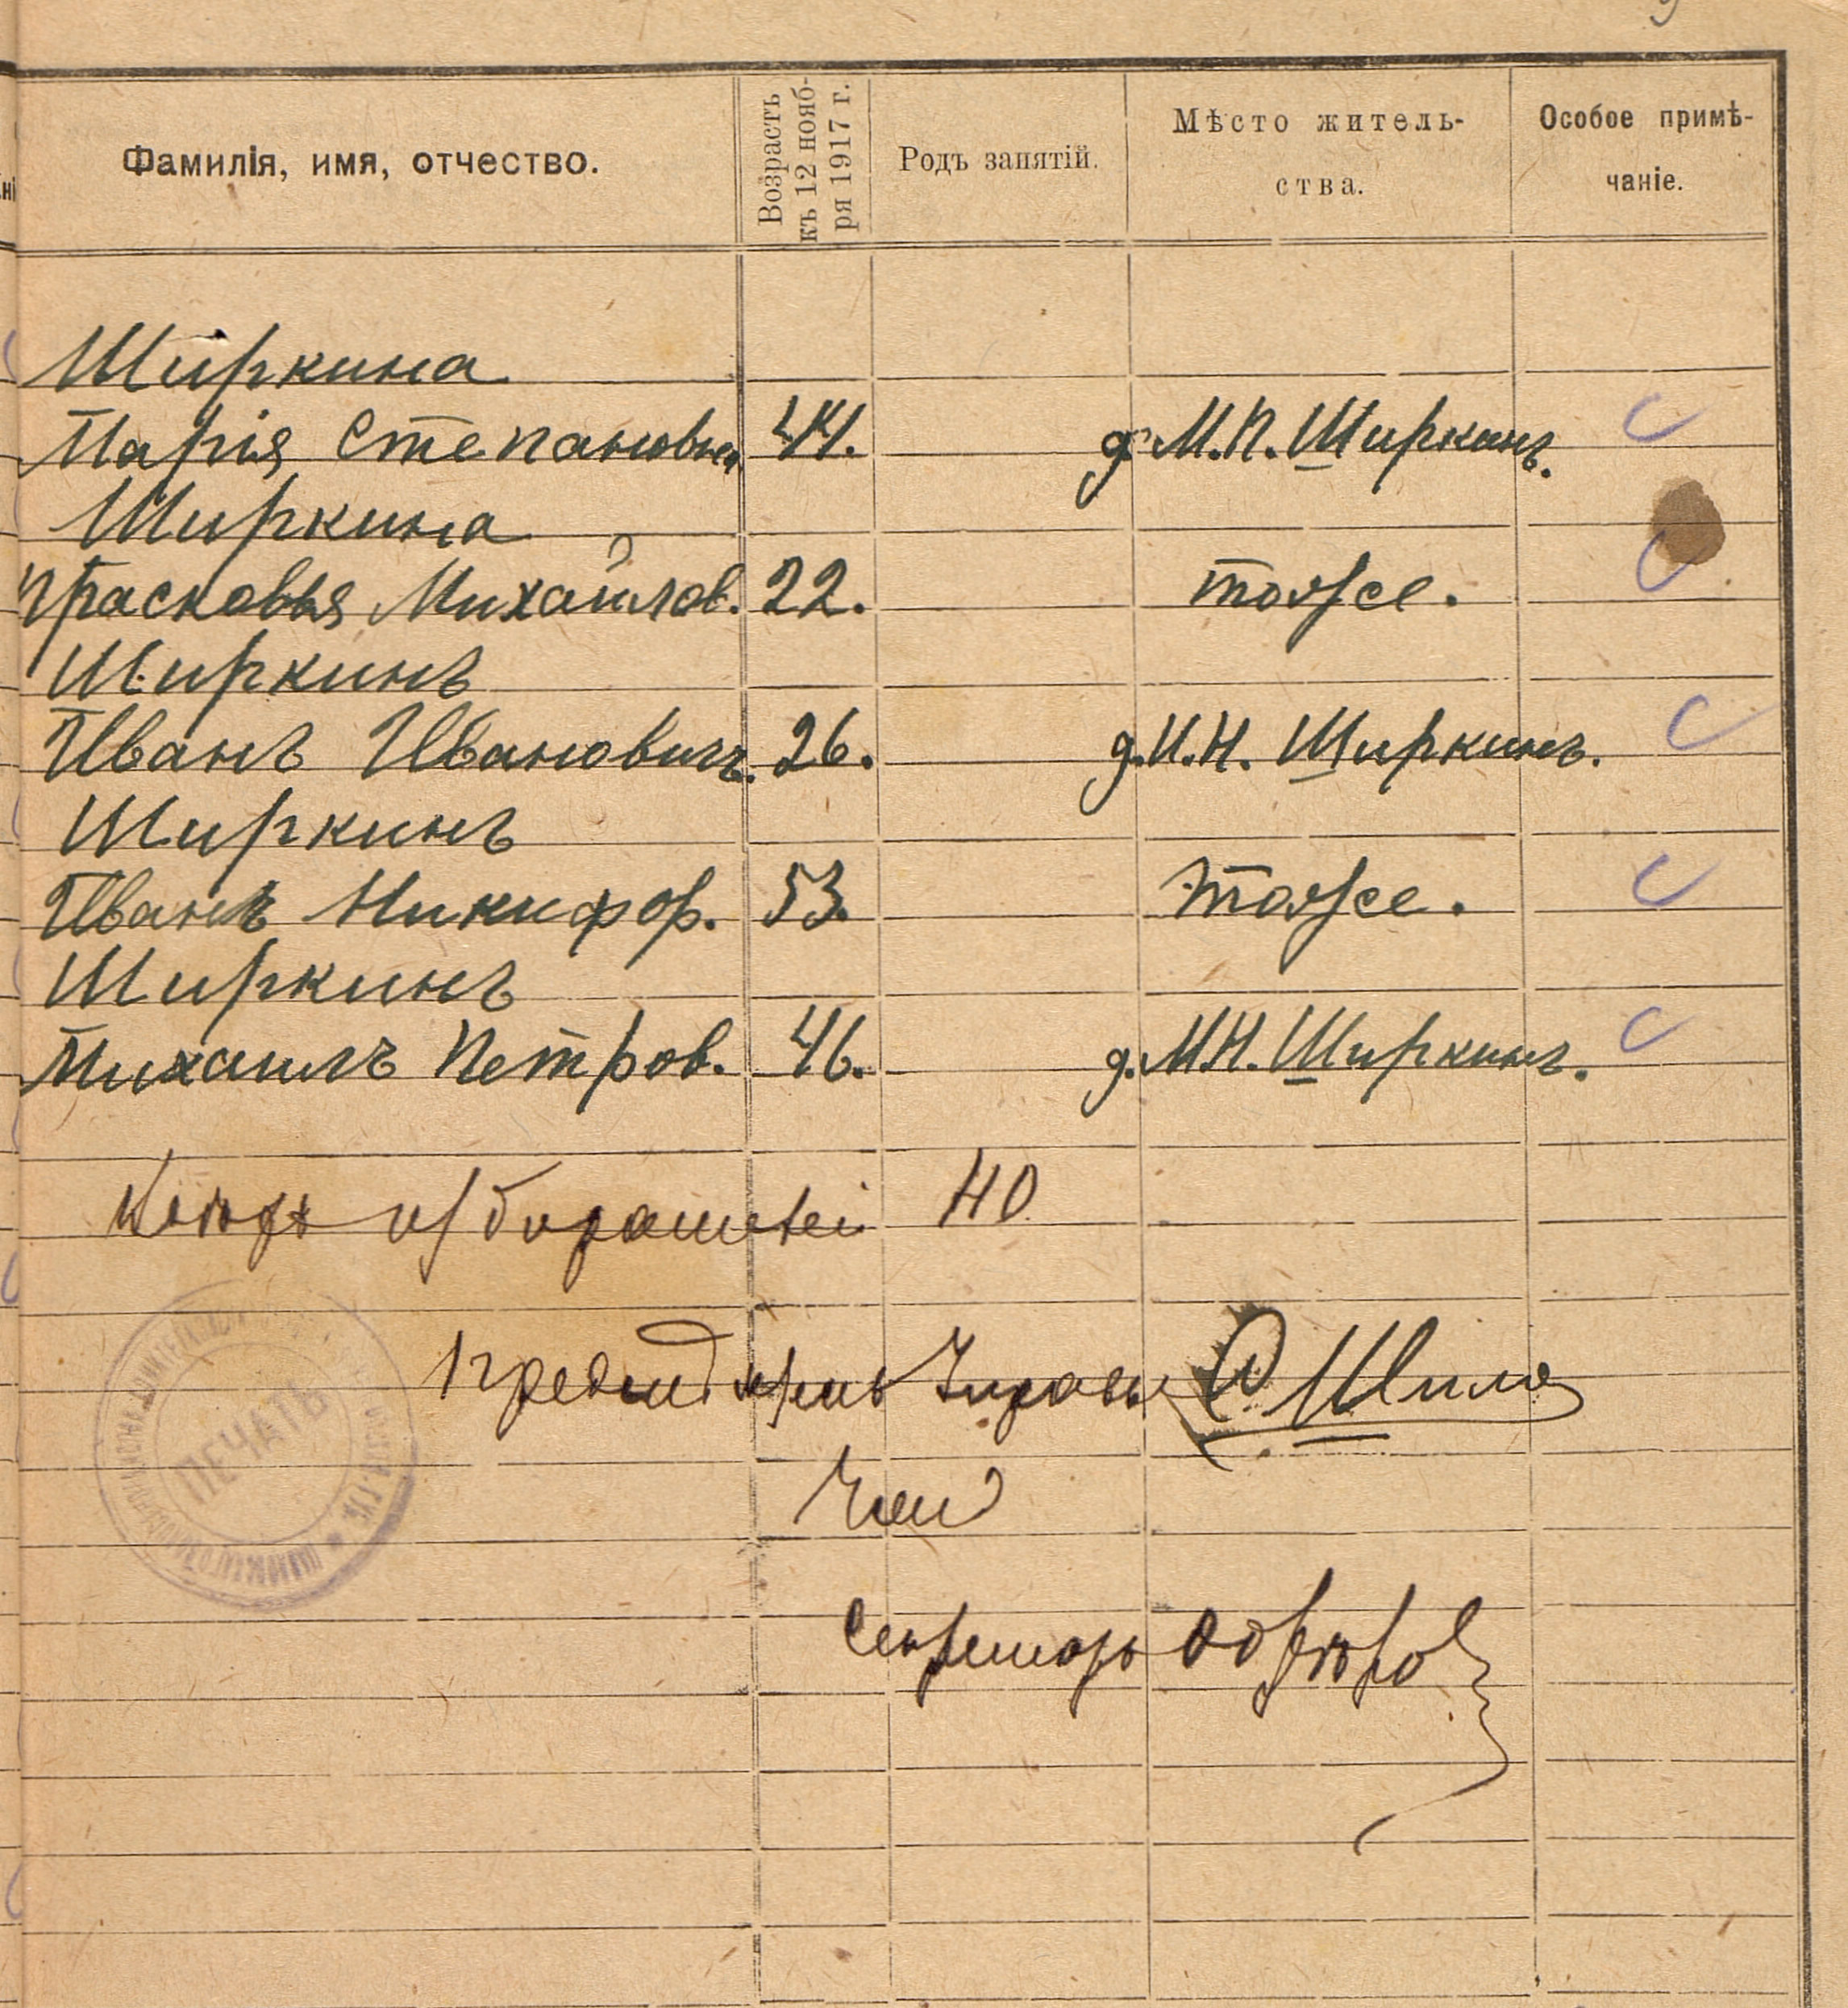 Фамилія, имя, отчество.
Возрастъ
къ 12 нояб-
ря 1917 г.
Родъ занятій.
Мѣсто житель-
ства.
Особое примѣ-
чаніе.
Ширкина
Марія Степановна 44. д. М. П. Ширкинъ.
Ширкина
Прасковья Михайлов. 22. тоже.
Ширкинъ
Иванъ Ивановичъ. 26. д. И. Н. Ширкинъ.
Ширкинъ
Иванъ Никифор. 53. тоже.
Ширкинъ
Михаилъ Петров. 46. д. М. Н. Ширкинъ.
избирателей 40
Предсѣдатель Управы
Член
Секретарь
ПЕЧАТЬ